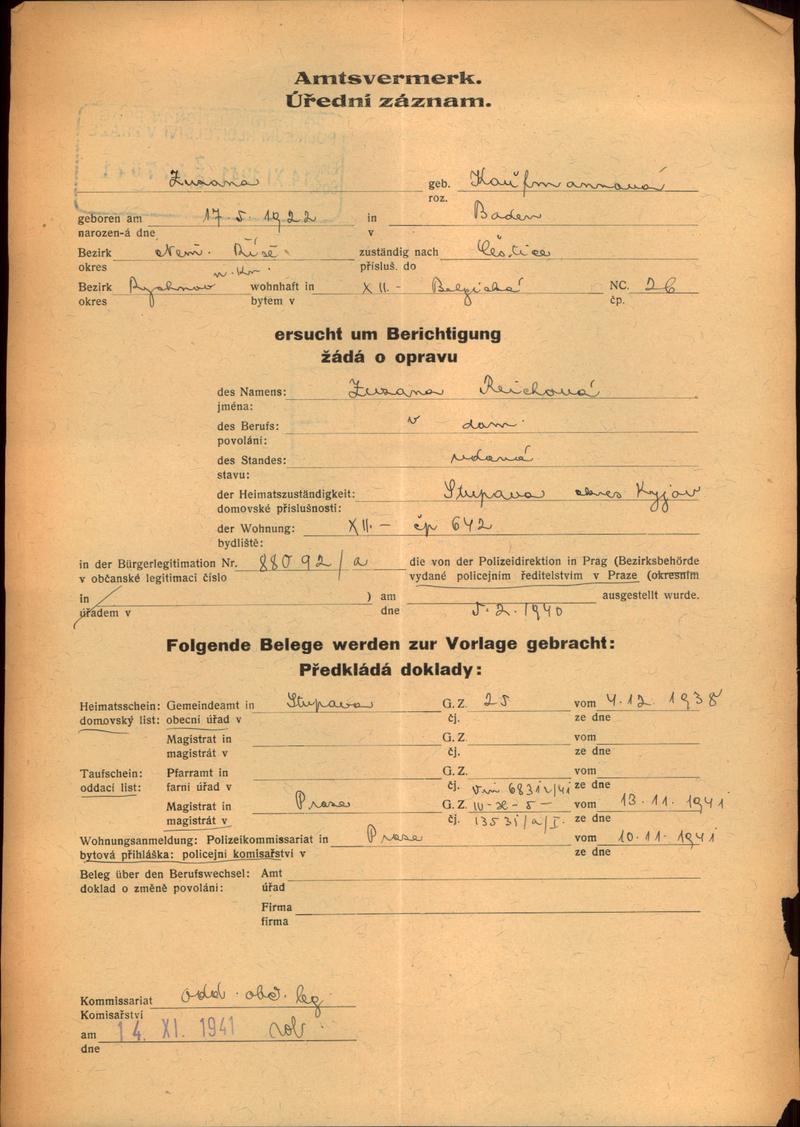 Amtsvermerk.
Úřední záznam.
Zuzana geb. Kaufmannová
roz.
geboren am 17. 5. 1922 in Baden
narozen-á dne v
Bezirk Něm. Říše zuständig nach Částice
okres n. Kn. přísluš. do
Bezirk Rychnov wohnhaft in XII. - Belgická NC. 26
okres bytem v čp.
ersucht um Berichtigung
žádá o opravu
des Namens: Zuzana Reichová
jména:
des Berufs: v dom.
povolání:
des Standes: vdaná
stavu:
der Heimatszuständigkeit: Stupava okres Kyjov
domovské příslušnosti:
der Wohnung: XII. - čp 642
bydliště:
in der Bürgerlegitimation Nr. 88092/a die von der Polizeidirektion in Prag (Bezirksbehörde
v občanské legitimaci číslo vydané policejním ředitelstvím v Praze (okresním
in ) am ausgestellt wurde.
úřadem v dne 5. 2. 1940
Folgende Belege werden zur Vorlage gebracht:
Předkládá doklady:
Heimatsschein: Gemeindeamt in Stupava G. Z. 25 vom 4. 12. 1938
domovský list: obecní úřad v čj. ze dne
Magistrat in G. Z. vom
magistrát v čj. ze dne
Taufschein: Pfarramt in G. Z. vom
oddací list: farní úřad v čj. ze dne
Magistrat in Praze G. Z. vom 13. 11. 1941
magistrát v čj. ze dne
Wohnungsanmeldung: Polizeikommissariat in Praze vom 10. 11. 1941
bytová přihláška: policejní komisařství v ze dne
Beleg über den Berufswechsel: Amt
doklad o změně povolání: úřad
Firma
firma
Kommissariat odd. obč. leg.
Komisařství
am 14. XI. 1941
dne